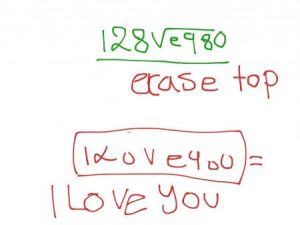 128√e980
erase top
ILove you =
I Love You